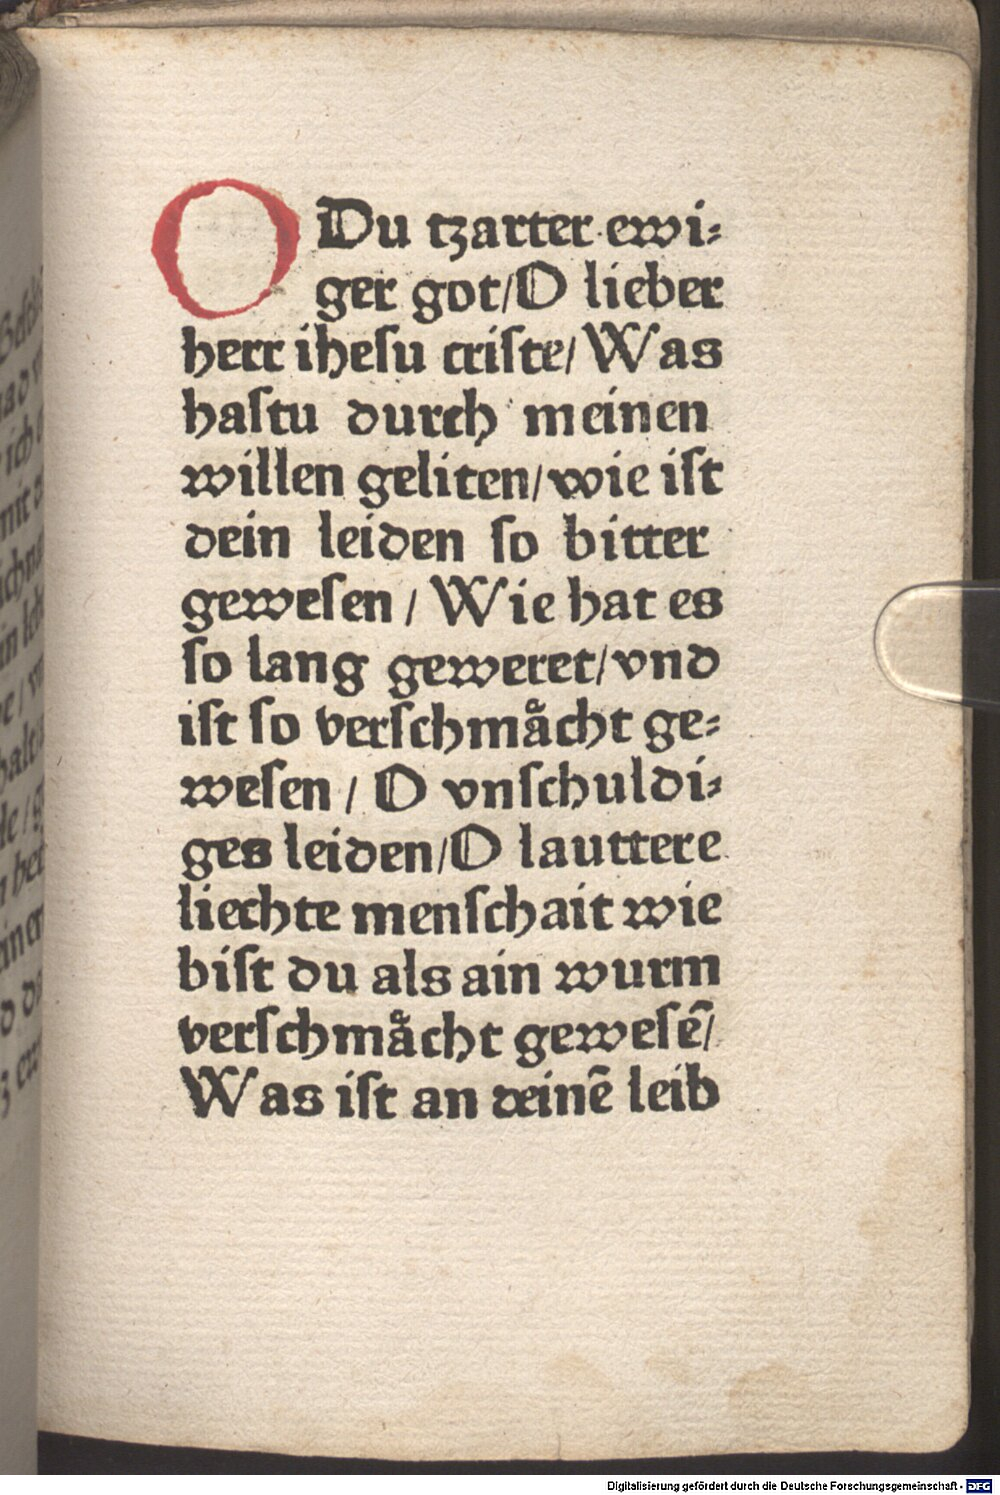 O Du tzarter ewi⸗
ger got/O lieber
herr ihesu criste/Was
hastu durch meinen
willen geliten/wie ist
dein leiden so bitter
gewesen / Wie hat es
so lang geweret/vnd
ist so verschmaͤcht ge⸗
wesen / O vnschuldi⸗
ges leiden/O lauttere
liechte menschait wie
bist du als ain wurm
verschmaͤcht gewesē/
Was ist an deinē leib
Digitalisierung gefördert durch die Deutsche Forschungsgemeinschaft - DFG